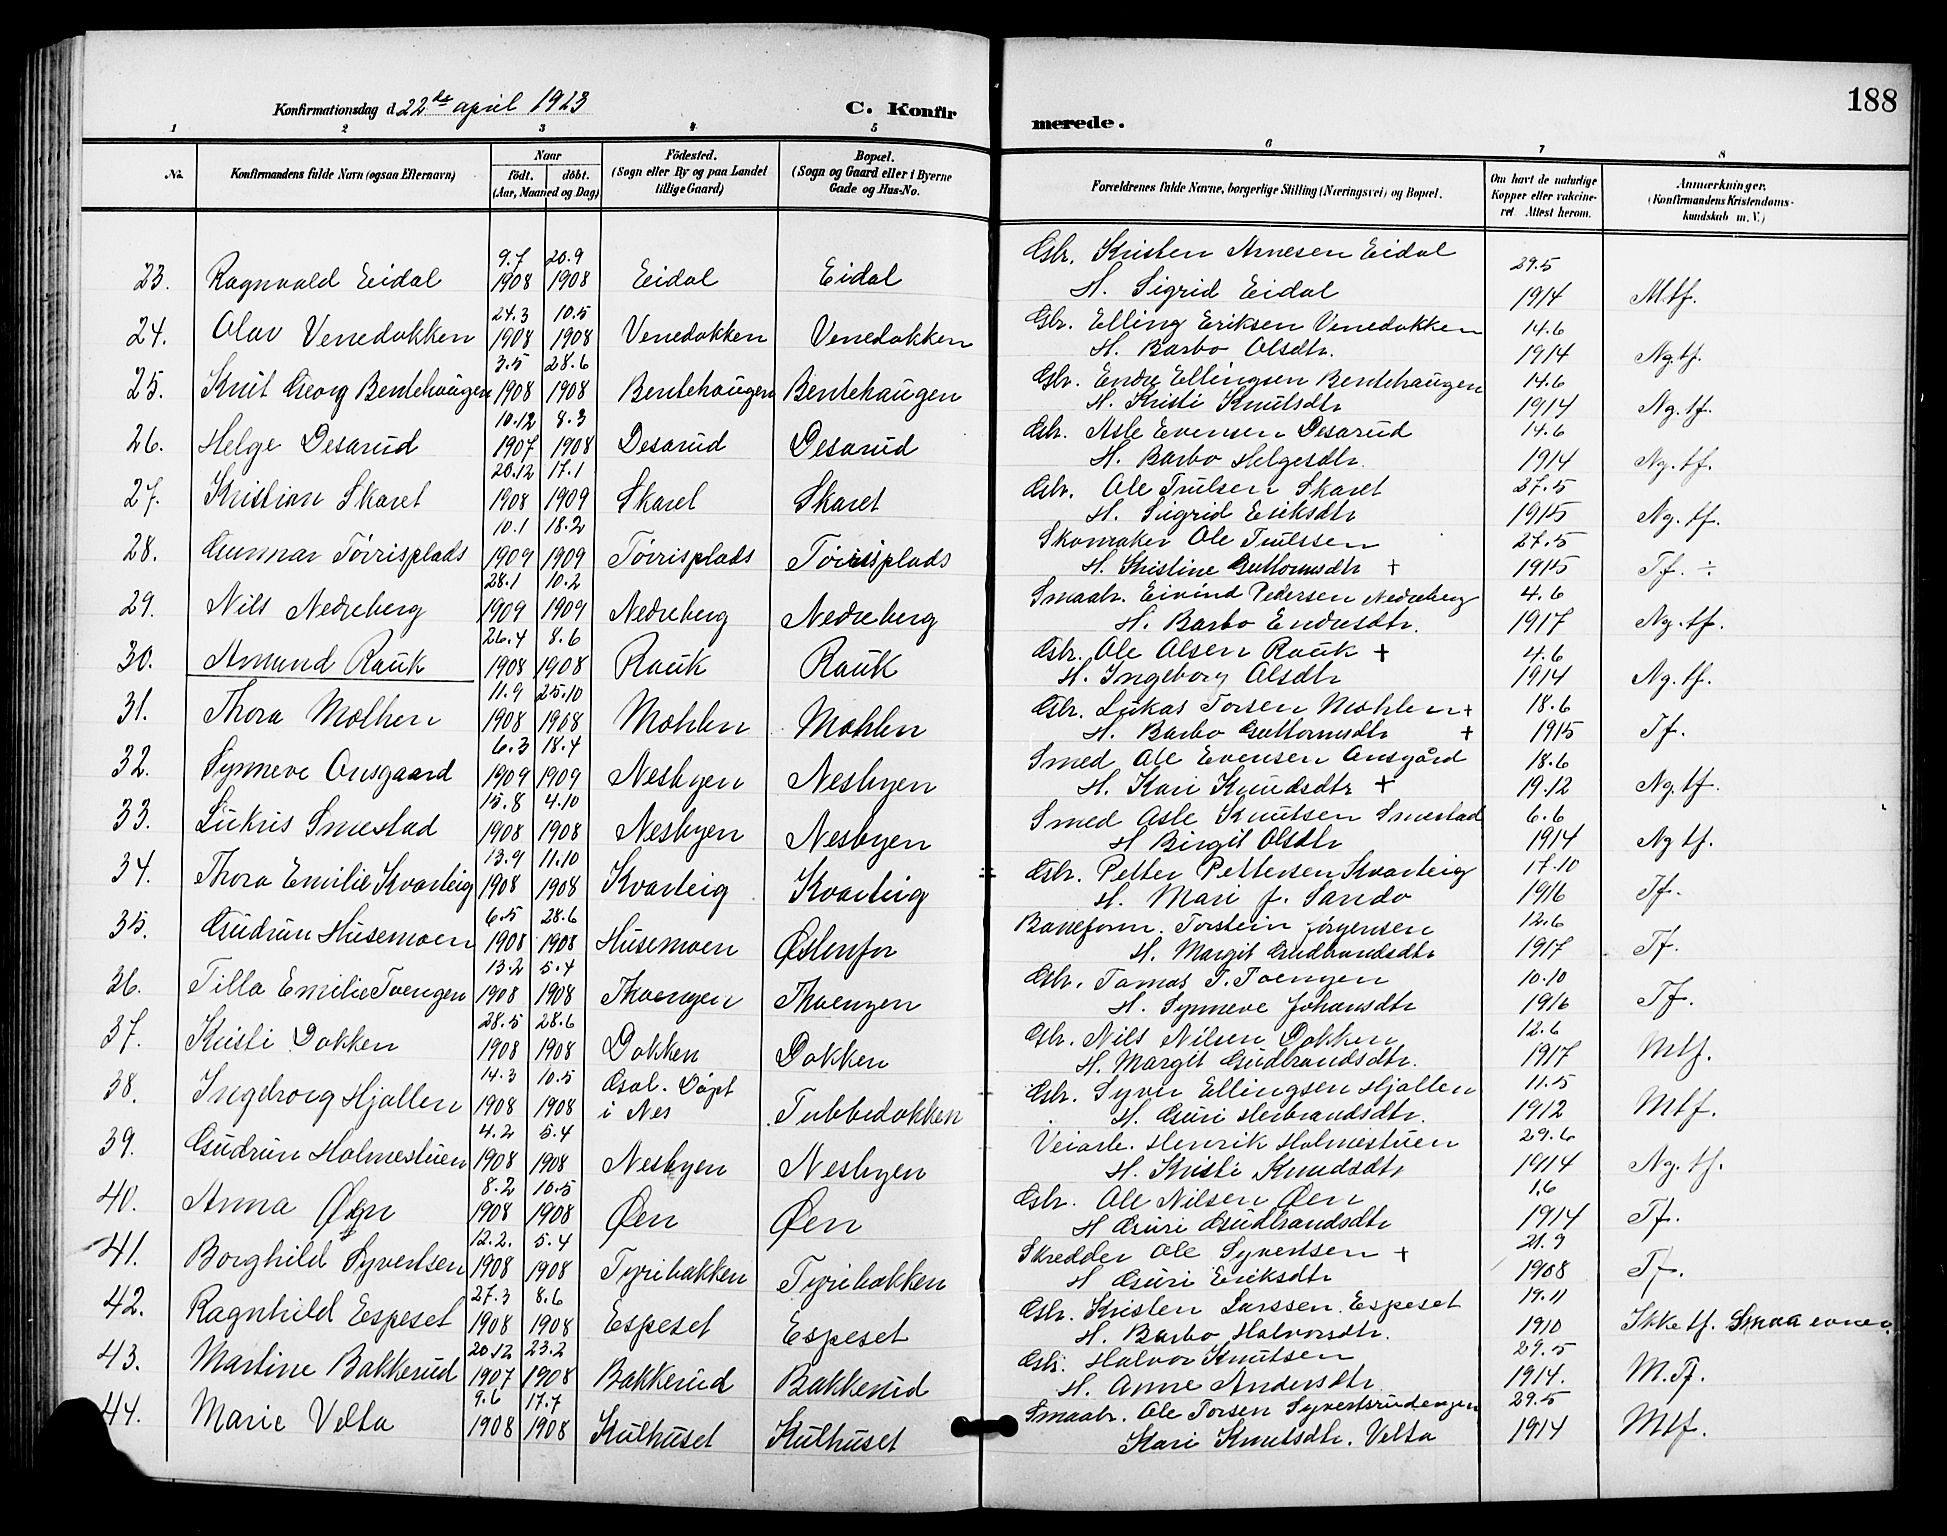 188
Konfirmationsdag d. 22de april 1923 C. Konfirmerede.
1 2 3 4 5 6 7 8
No. Konfirmandens fulde Navn (ogsaa Efternavn) Naar født. døbt. (Aar, Maaned og Dag) Födested. (Sogn eller By og paa Landet tillige Gaard) Bopæl. (Sogn og Gaard eller i Byerne Gade og Hus-No. Forældrenes fulde Navne, borgerlige Stilling (Næringsvei) og Bopæl. Om havt de naturlige Kopper eller vakcineret Attest herom. Anmærkninger. (Konfirmandens Kristendomskundskab m. V.)
23. Ragnvald Eidal 9.7 1908 20.9 1908 Eidal Eidal Gbr. Kristen Arnesen Eidal H. Sigrid Eidal 29.5 1914 Mtf.
24. Olav Venedokken 24.3 1908 10.5 1908 Venedokken Venedokken Gbr. Elling Eriksen Venedokken H. Barbo Olsdtr. 14.6 1914 Ng. tf.
25. Knut Georg Bentehaugen 3.5 1908 28.6 1908 Bentehaugen Bentehaugen Gbr. Endre Ellingsen Bentehaugen H. Kristi Knutsdtr 14.6 1914 Ng. tf.
26. Helge Desarud 10.12 1907 8.3 1908 Desarud Desarud Gbr. Asle Evensen Desarud H. Barbo Helgesdtr. 14.6 1914 Ng. tf.
27. Kristian Skaret 20.12 1908 17.1 1909 Skaret Skaret Gbr. Ole Trulsen Skaret H. Sigrid Eriksdtr 27.5 1915 Ng. tf.
28. Gunnar Torrisplads 10.1 1909 18.2 1909 Torrisplads Torrisplads Skomaker Ole Trulssen H. Kristine Guttormsdtr + 27.5 1915 Tf. ÷
29. Nils Nedreberg 28.1 1909 10.2 1909 Nedreberg Nedreberg Smaabr. Eivind Pedersen Nedreberg H. Barbo Endresdtr. 4.6 1917 Ng. tf.
30. Amund Rauk 26.4 1908 8.6 1908 Rauk Rauk Gbr. Ole Olsen Rauk + H. Ingeborg Olsdtr 4.6 1914 Ng. tf.
31. Thora Molhen 11.9 1908 25.10 1908 Mohlen Mohlen Gbr. Lukas Torsen Mohlen + H. Barbo Guttormsdtr + 18.6 1915 Tf.
32. Synneve Onsgaard 6.3 1909 18.4 1909 Nesbyen Nesbyen Smed Ole Evensen Onsgård H. Kari Knudsdtr + 18.6 1912 Ng. tf.
33. Lukris Smestad 15.8 1908 4.10 1908 Nesbyen Nesbyen Smed Asle Knutsen Smestad H Birgit Olsdtr 6.6 1914 Ng tf.
34. Thora Emilie Kvarteig 13.9 1908 11.10 1908 Kvarteig Kvarteig Gbr. Petter Pettersen Kvarteig H. Mari f. Sando 17.10 1916 Tf.
35. Gudrun Husemoen 6.5 1908 28.6 1908 Husemoen Østenfor Baneform. Torstein Jørgensen H. Margit Gudbrandsdtr 12.6 1917 Tf.
36. Tilla Emilie Toengen 13.2 1908 5.4 1908 Thoengen Thoengen Gbr. Tomas T. Toengen H. Synneve Johansdtr 10.10 1916 Tf.
37. Kristi Dokken 28.5 1908 28.6 1908 Dokken Dokken Gbr. Nils Nilsen Dokken H. Margit Gudbrandsdtr. 12.6 1917 Mtf.
38. Ingeborg Hjallen 14.3 1908 10.5 1908 Gol. Døpt i Nes Tubbedokken Gbr. Syver Ellingsen Hjallen H. Guri Herbrandsdtr. 11.5 1912 Mtf.
39. Gudrun Holmestuen 4.2 1908 5.4 1908 Nesbyen Nesbyen Veiarb. Henrik Holmestuen H. Kristi Knudsdtr 29.6 1914 Ng. tf.
40. Anna Øen 8.2 1908 10.5 1908 Øen Øen Gbr. Ole Nilsen Øen H Guri Gudbrandsdtr 1.6 1914 Tf.
41. Borghild Syvertsen 12.2. 1908 5.4 1908 Tyribakken Tyribakken Skredder Ole Syvertsen + H Guri Eriksdtr 21.9 1908 Tf.
42. Ragnhild Espeset 27.3 1908 8.6 1908 Espeset Espeset Gbr. Kristen Larssen Espeset H. Barbo Halvorsdtr. 19.11 1910 Ikke tf. Smaa evner.
43. Martine Bakkerud 20.12 1907 23.2 1908 Bakkerud Bakkerud Gbr. Halvor Knutsen H. Anne Andersdtr. 29.5 1914. M. Tf.
44. Marie Velta 9.6 1908 17.7 1908 Kulhuset Kulhuset Smaabr. Ole Torsen Syvertsrudengen Kari Knutsdtr. Velta 29.5 1914 Mtf.